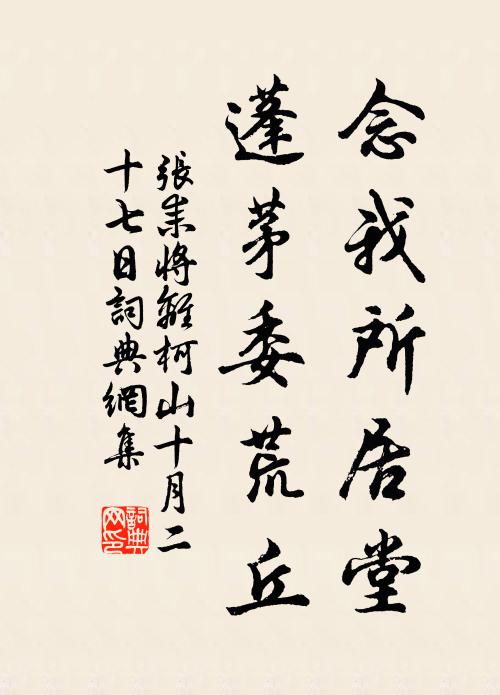 念我所居堂
蓬茅委荒丘
張耒將離柯山十月二
十七日詞典網集
詞典
网印